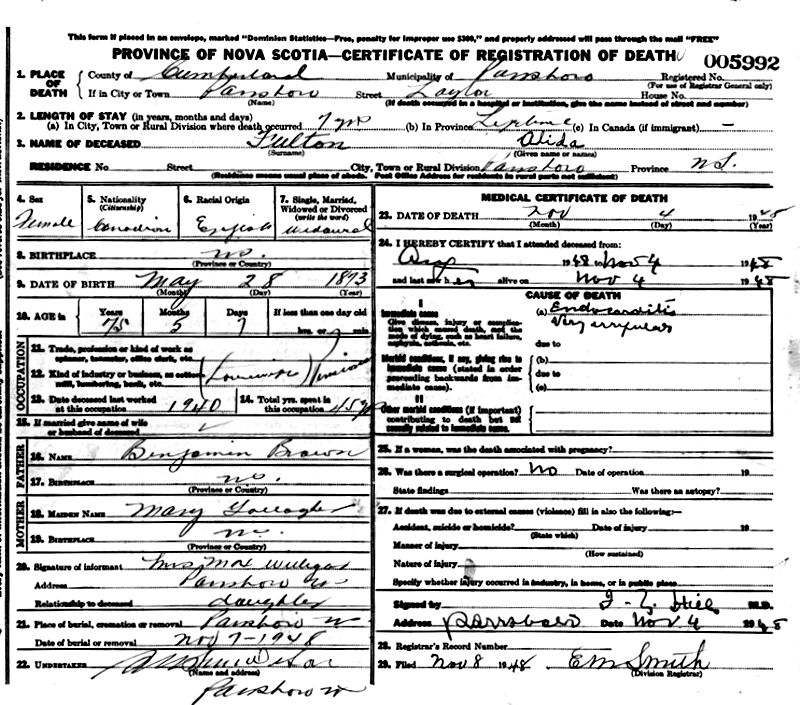 This form if placed in an envelope, marked "Dominion Statistics—Free, penalty for improper use $300," and properly addressed will pass through the mail "FREE"
PROVINCE OF NOVA SCOTIA—CERTIFICATE OF REGISTRATION OF DEATH
005992
1. PLACE OF DEATH County of Cumberland Municipality of Parrsboro Registered No.
(For use of Registrar General only)
If in City or Town Parrsboro Street Taylor House No.
(Name) (If death occurred in a hospital or institution, give the name instead of street and number)
2. LENGTH OF STAY (in years, months and days)
(a) In City, Town or Rural Division where death occurred 7 yrs (b) In Province Lifetime (c) In Canada (if immigrant) —
3. NAME OF DECEASED Fulton Alida
(Surname) (Given name or names)
RESIDENCE No. Street City, Town or Rural Division Parrsboro Province N.S.
(Residence means usual place of abode. Post Office Address for residents in rural parts not sufficient)
4. Sex Female
5. Nationality (Citizenship) Canadian
6. Racial Origin English
7. Single, Married, Widowed or Divorced (write the word) Widowed
8. BIRTHPLACE N.S.
(Province or Country)
9. DATE OF BIRTH May 28 1873
(Month) (Day) (Year)
10. AGE in Years Months Days If less than one day old
75 5 7 hrs. or min.
OCCUPATION
11. Trade, profession or kind of work as spinner, teamster, office clerk, etc.
12. Kind of industry or business, as cotton mill, lumbering, bank, etc. Housewife
13. Date deceased last worked at this occupation 1940
14. Total yrs. spent in this occupation 45 yrs
15. If married give name of wife or husband of deceased
FATHER
16. NAME Benjamin Brown
17. BIRTHPLACE N.S.
(Province or Country)
MOTHER
18. MAIDEN NAME Mary
19. BIRTHPLACE
(Province or Country)
20. Signature of informant Mrs Max
Address Parrsboro
Relationship to deceased daughter
21. Place of burial, cremation or removal Parrsboro
Date of burial or removal Nov 7-1948
22. UNDERTAKER
(Name and address)
Parrsboro
MEDICAL CERTIFICATE OF DEATH
23. DATE OF DEATH Nov 4 1948
(Month) (Day) (Year)
24. I HEREBY CERTIFY that I attended deceased from:
Aug 1948 to Nov 4 1948
and last saw her alive on Nov 4 1948
CAUSE OF DEATH
I
Immediate cause
Give disease, injury or complication, which caused death, not the mode of dying, such as heart failure, asphyxia, asthenia, etc.
(a) Endocarditis
Very irregular
due to
Morbid conditions, if any, giving rise to immediate cause (stated in order proceeding backwards from immediate cause).
(b)
due to
(c)
II
Other morbid conditions (if important) contributing to death but not causally related to immediate cause.
25. If a woman, was the death associated with pregnancy?
26. Was there a surgical operation? No Date of operation 19
State findings Was there an autopsy?
27. If death was due to external causes (violence) fill in also the following:—
Accident, suicide or homicide? Date of injury 19
(State which)
Manner of injury
(How sustained)
Nature of injury
Specify whether injury occurred in industry, in home, or in public place
Signed by Hill M.D.
Address Parrsboro Date Nov 4 1948
28. Registrar's Record Number
29. Filed Nov 8 1948 E M Smith
(Division Registrar)